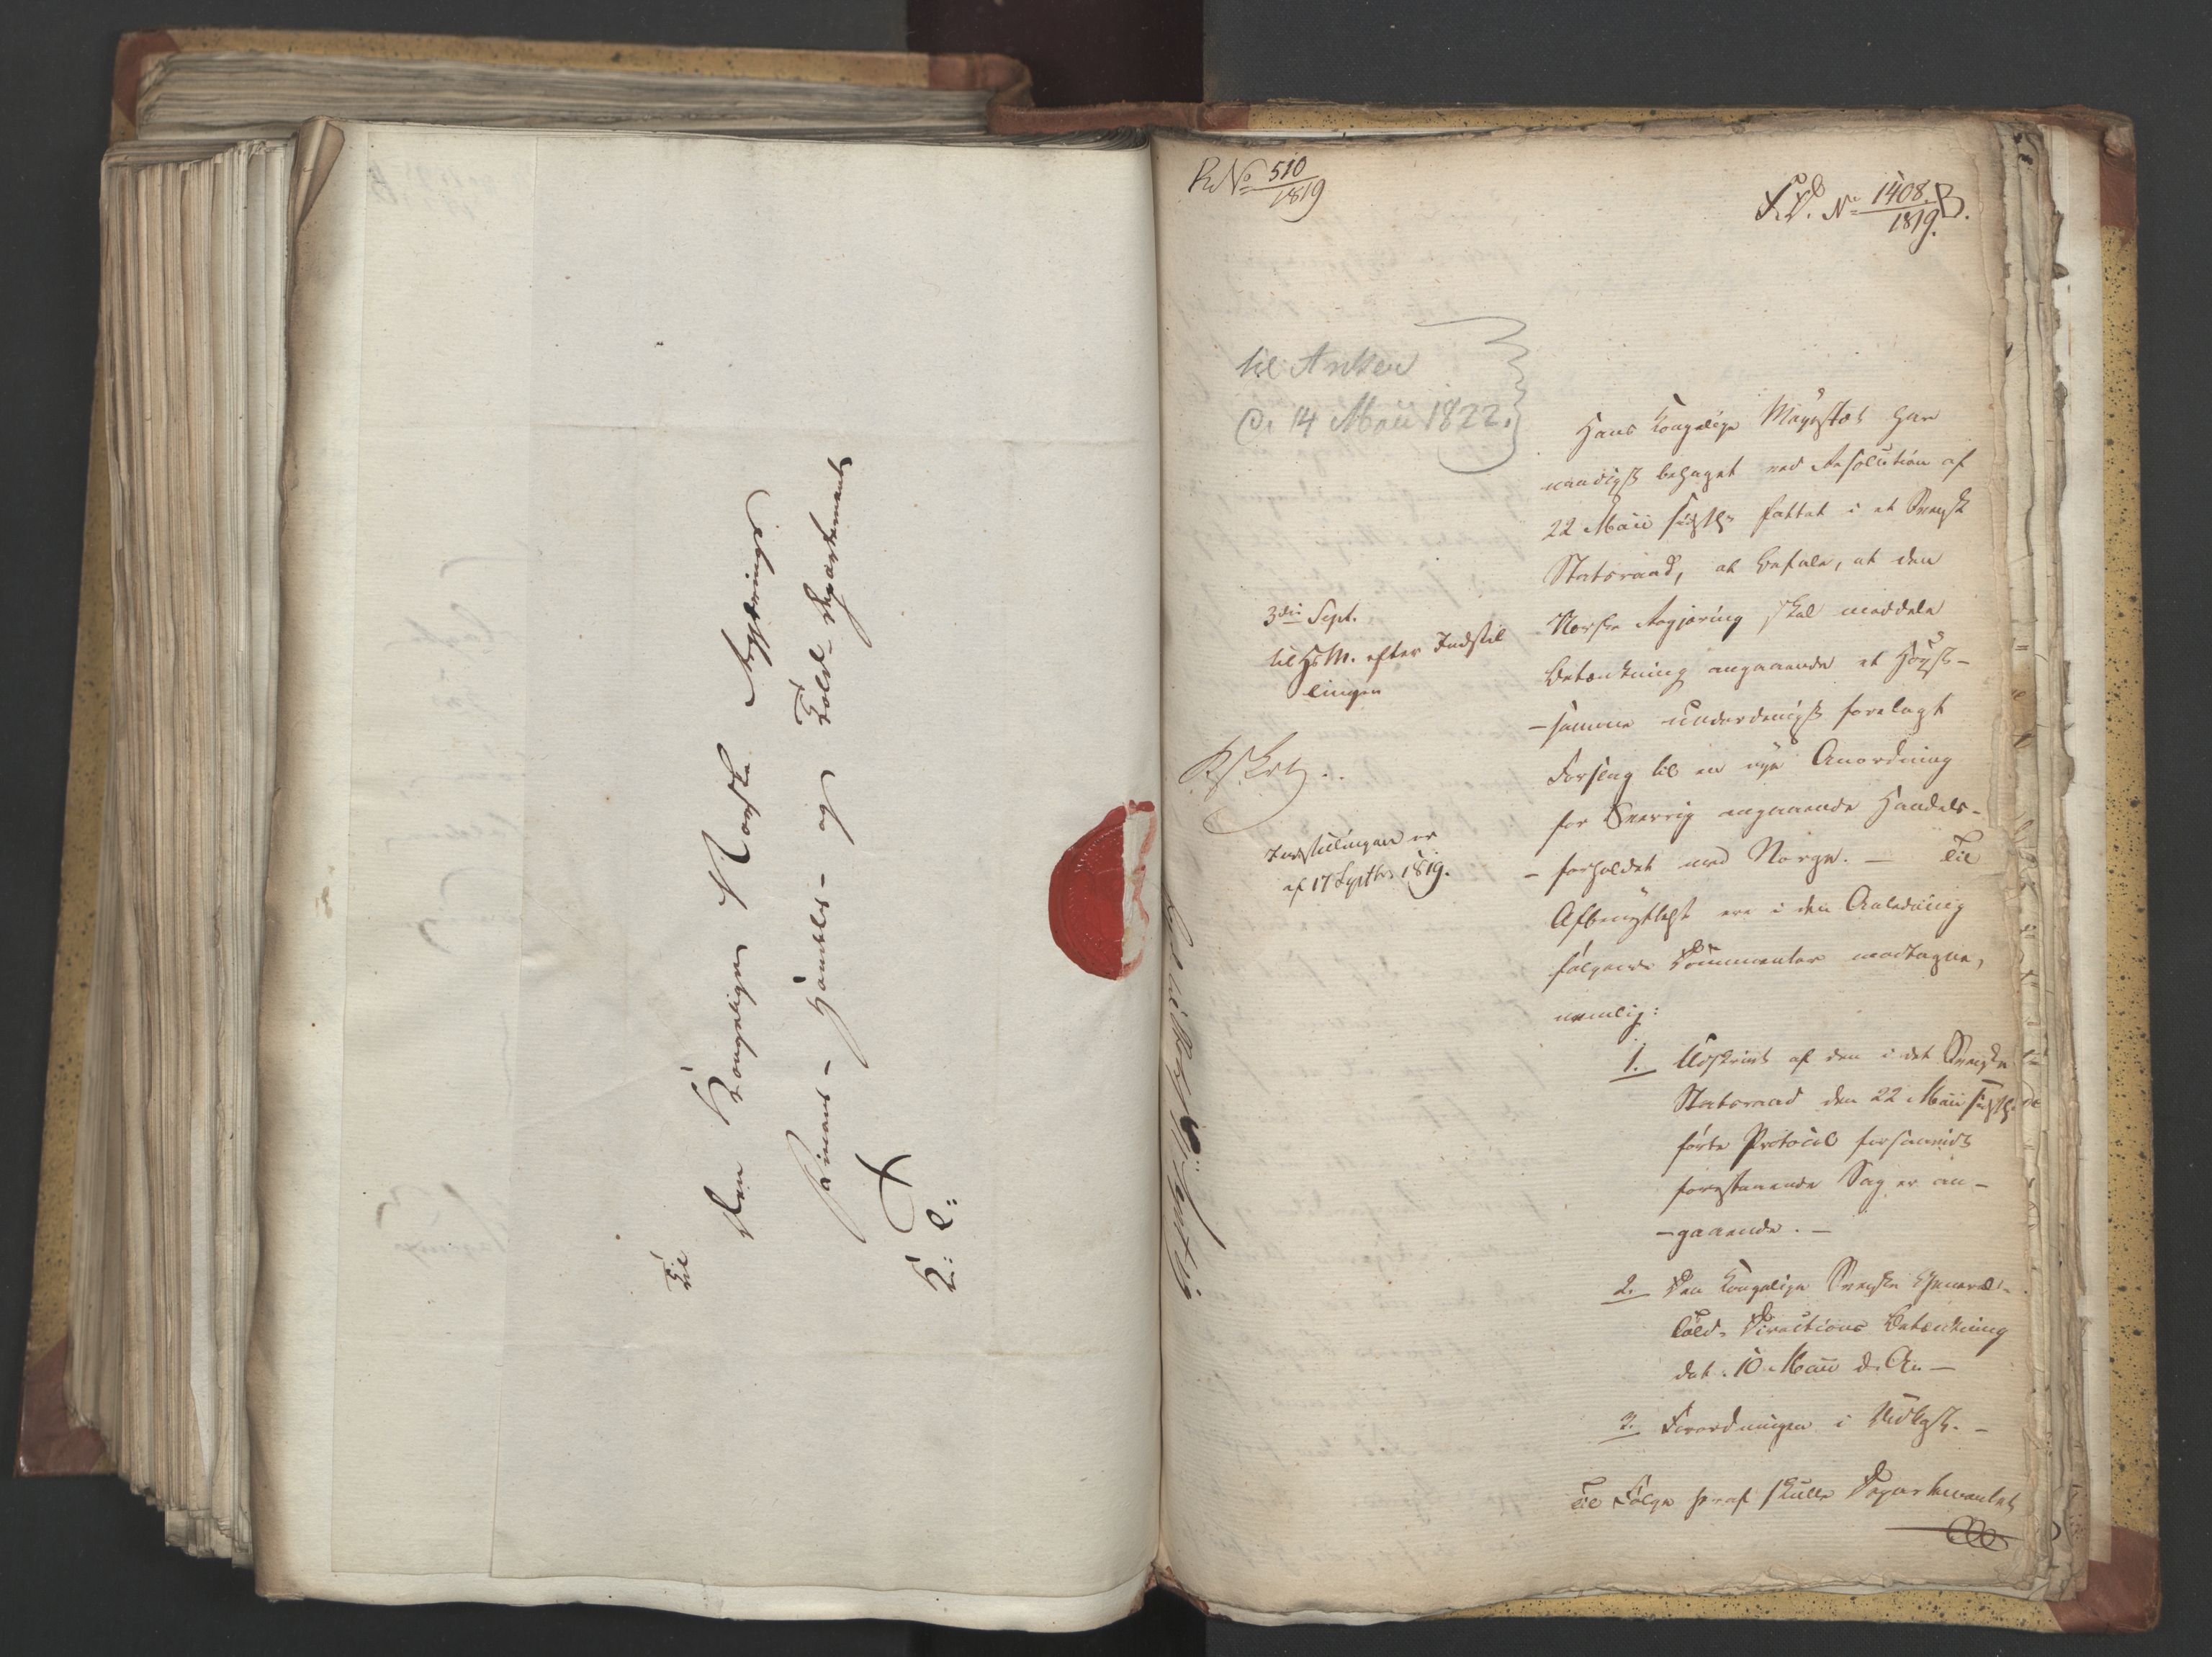 Til
Den Kongelige Norske Regjerings
Finans- Handels- og Told-Departement
R No 510/1819
F.D. No 1408.B./1819.
til Anker
d. 14 Maii 1822.
3die Sept.
til Hs M. efter Indstil
lingen
Indstillingen er
af 17 Septbr 1819.
Hans Kongelige Mayestæt har
naadigst behaget ved Resolution af
22 Maii sidstl. fattet i et Svensk
Statsraad, at befale, at den
Norske Regjering skal meddele
Betænkning angaaende et Høyst-
-samme underdanigst forelagt
Forslag til en nye Anordning
for Sverrig angaaende Handels-
-forholdet med Norge. — Til
Afbenyttelse ere i den Anledning
følgende Documenter modtagne,
nemlig:
1. Udskrivt af den i det Svenske
Statsraad den 22 Maii sidstl.
førte Protocol forsaavidt
forestaaende Sag er an-
-gaaende. —
2. Den Kongelige Svenske General-
Told-Directions Betænkning
dat. 10 Maii d. A. —
3. Forordningen i Udkast. —
Til Følge heraf skulle Departementet